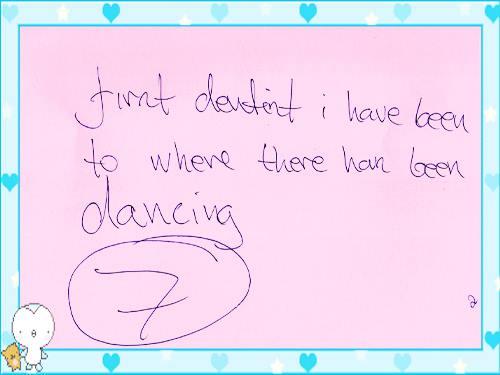 first dentist i have been
to where there has been
dancing
7
2